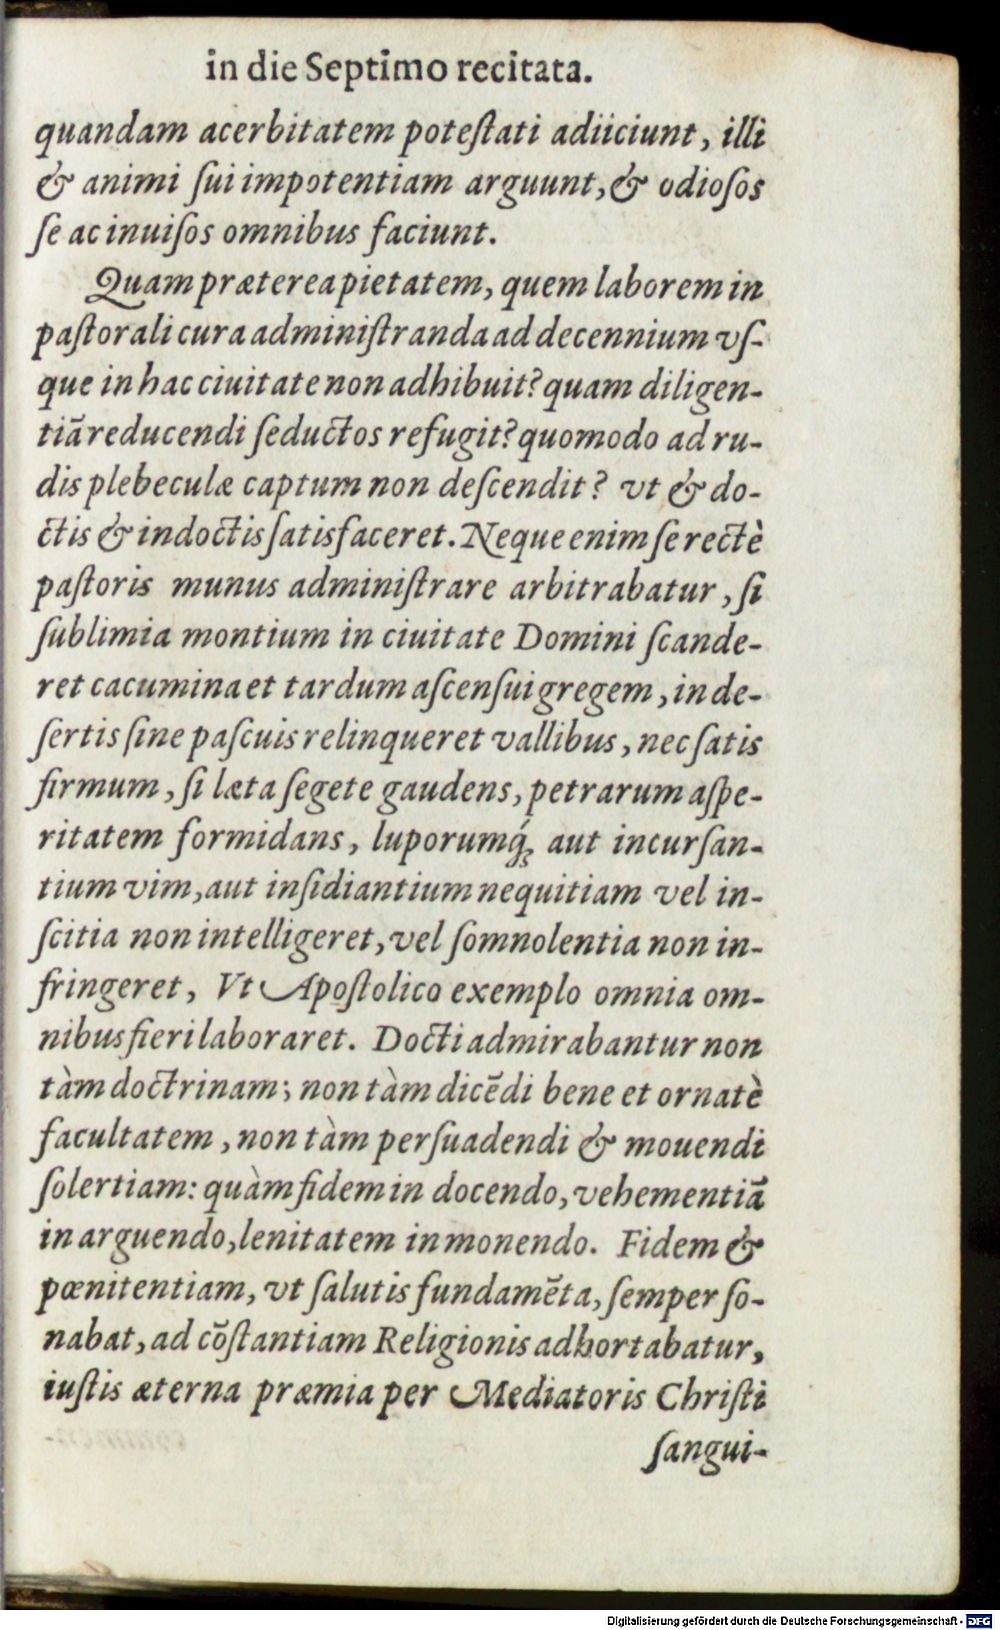 in die Septimo recitata.
quandam acerbitatem poteſtati adiiciunt, illi
& animi ſui impotentiam arguunt, & odioſos
ſe ac inuiſos omnibus faciunt.
Quam prætereapietatem, quem laborem in
paſtorali cura adminiſtranda ad decennium vſ-
que in hac ciuitate non adhibuit? quam diligen-
tiā reducendi ſeductos refugit? quomodo ad ru-
dis plebeculæ captum non deſcendit? vt & do-
ctis & indoctis ſatisfaceret. Neque enim ſe rectè
paſtoris munus adminiſtrare arbitrabatur, ſi
ſublimia montium in ciuitate Domini ſcande-
ret cacumina et tardum aſcenſui gregem, in de-
ſertis ſine paſcuis relinqueret vallibus, nec ſatis
firmum, ſi læta ſegete gaudens, petrarum aſpe-
ritatem formidans, luporumq́ꝫ aut incurſan-
tium vim, aut inſidiantium nequitiam vel in-
ſcitia non intelligeret, vel ſomnolentia non in-
fringeret, Vt Apoſtolico exemplo omnia om-
nibus fieri laboraret. Docti admirabantur non
tàm doctrinam; non tàm dicēdi bene et ornatè
facultatem, non tàm perſuadendi & mouendi
ſolertiam: quàm fidem in docendo, vehementiā
in arguendo, lenitatem in monendo. Fidem &
pœnitentiam, vt ſalutis fundamēta, ſemper ſo-
nabat, ad cōſtantiam Religionis adhortabatur,
iuſtis æterna præmia per Mediatoris Chriſti
ſangui-
Digitalisierung gefördert durch die Deutsche Forschungsgemeinschaft - DFG